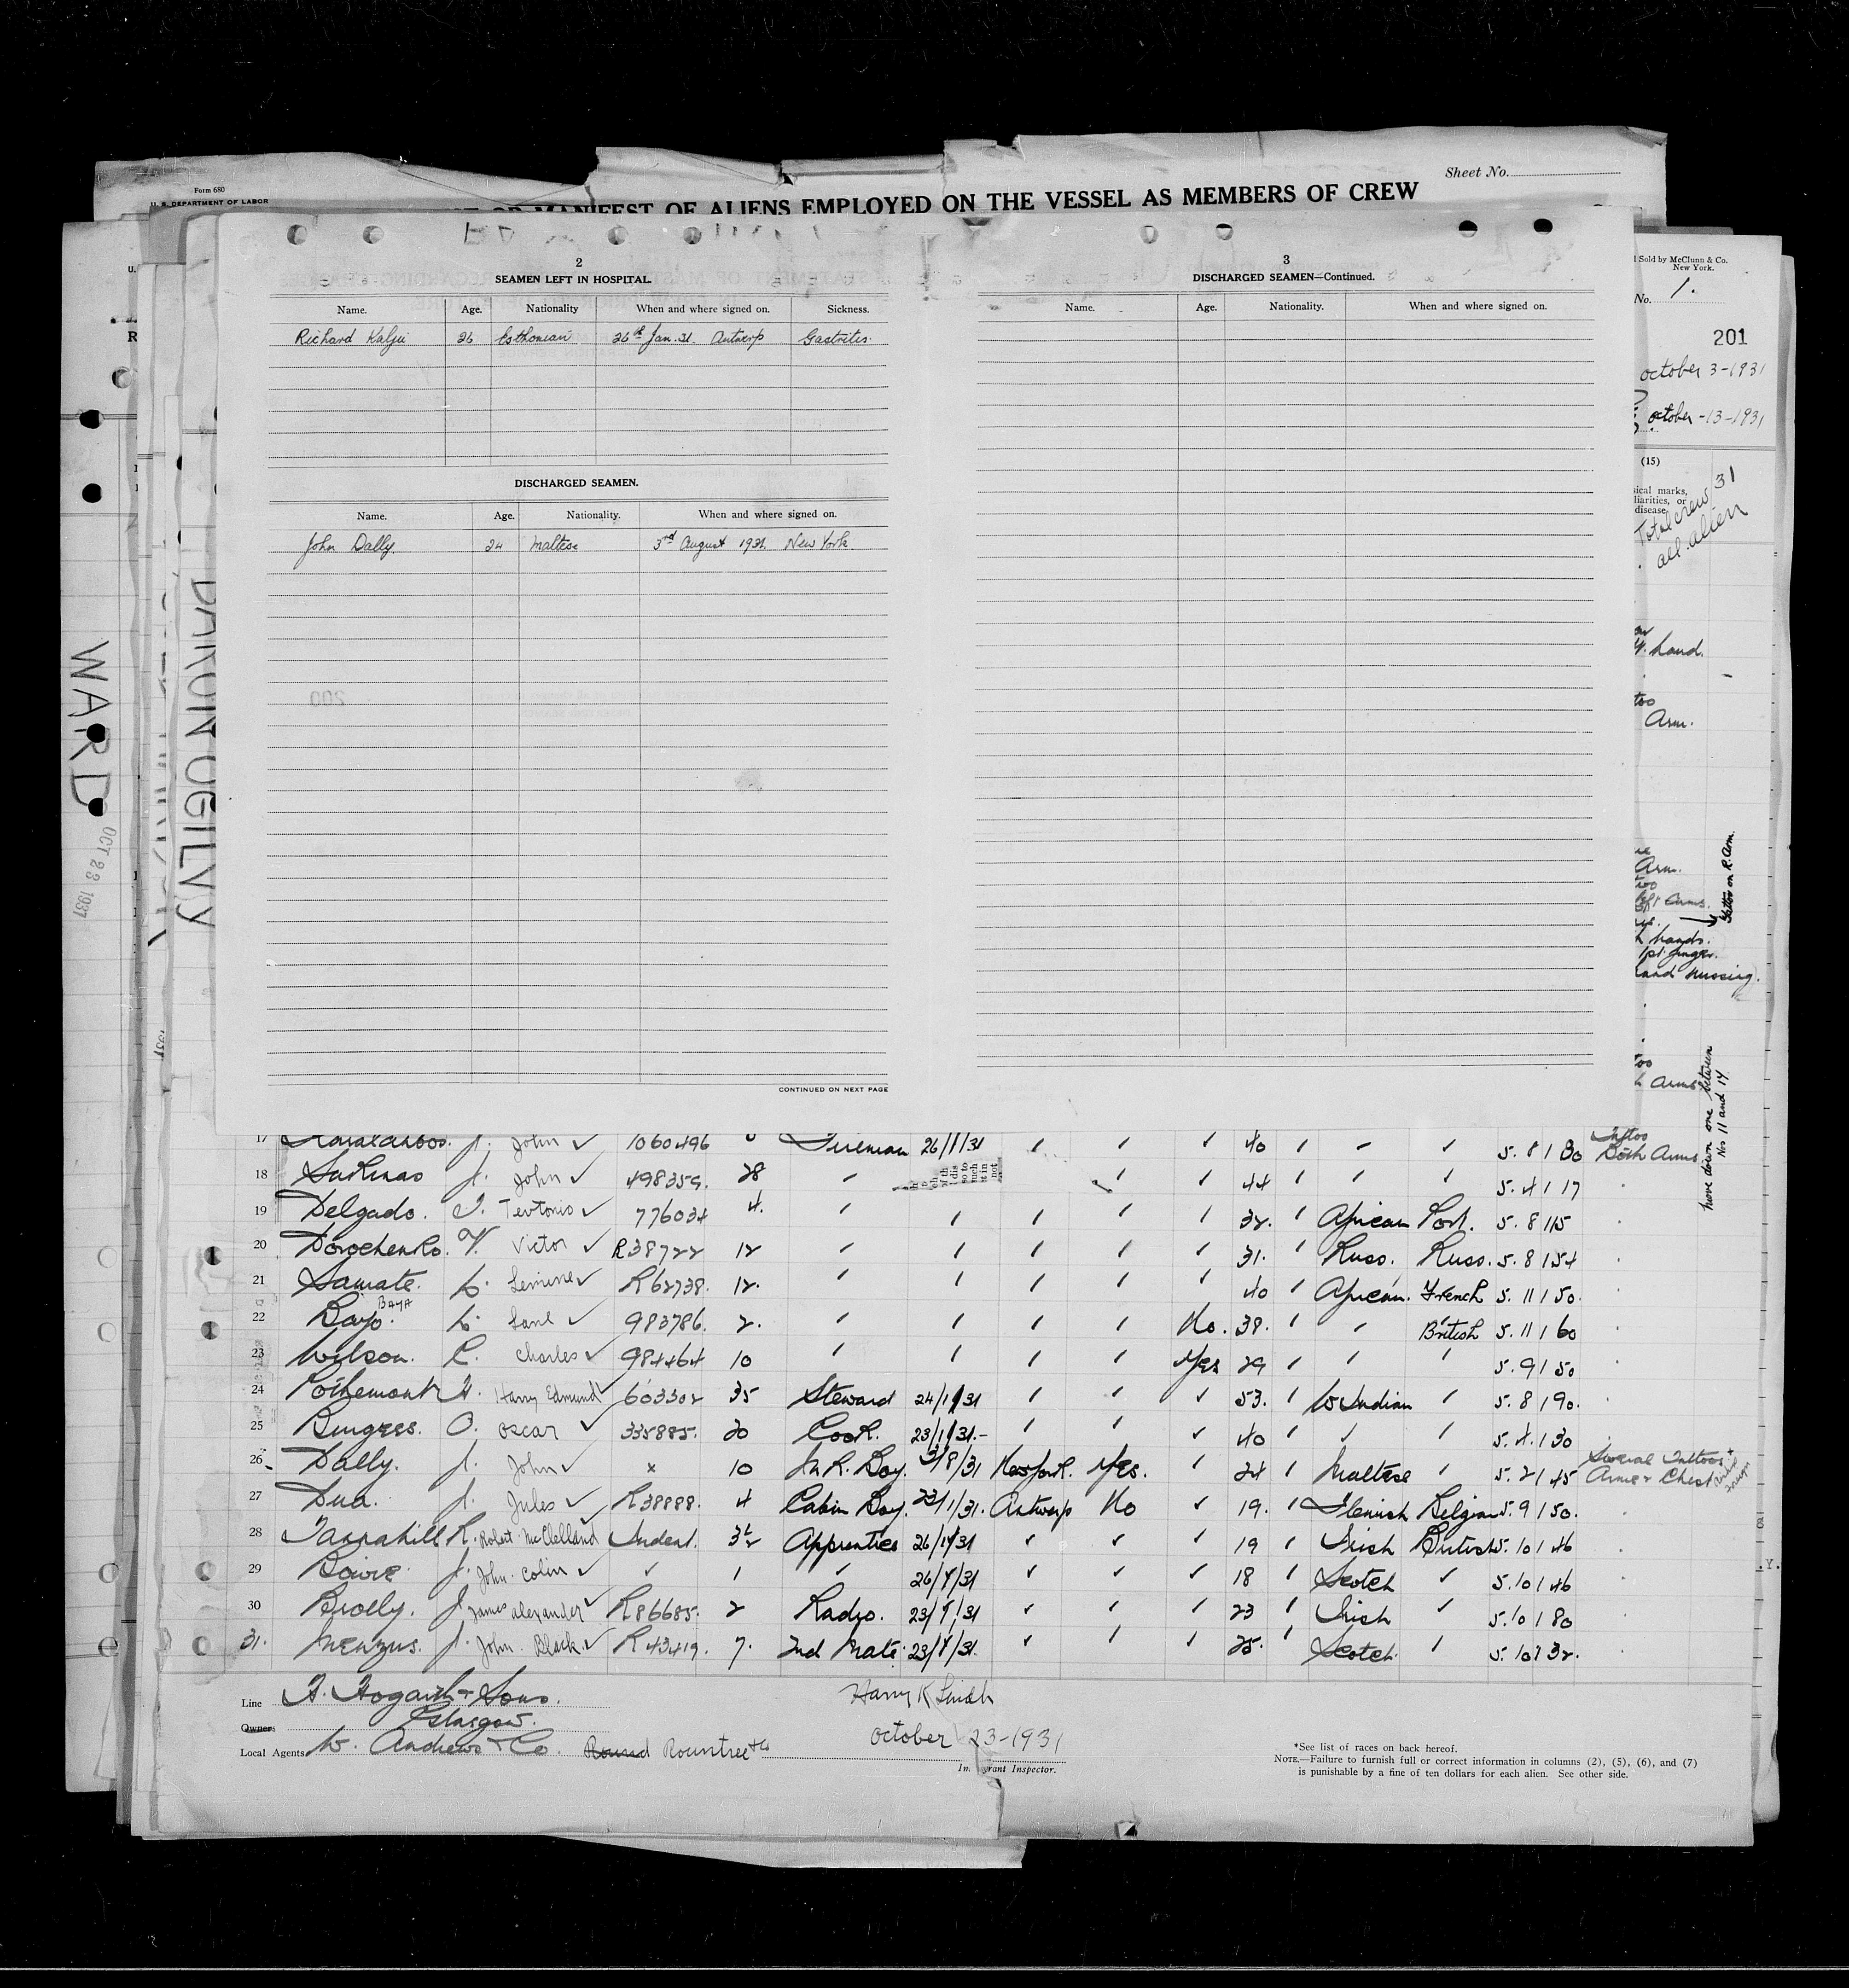 Sheet No.
Form 680
U. S. DEPARTMENT OF LABOR
OR MANIFEST OF ALIENS EMPLOYED ON THE VESSEL AS MEMBERS OF CREW
2
SEAMEN LEFT IN HOSPITAL.
Name. Age. Nationality When and where signed on. Sickness.
Richard Kalju 26 Esthonian 26th Jan. 31. Antwerp Gastritis.
DISCHARGED SEAMEN.
Name. Age. Nationality. When and where signed on.
John Dally. 24 Maltese 3rd August 1931. New York.
200
CONTINUED ON NEXT PAGE
3
DISCHARGED SEAMEN—Continued.
Name. Age. Nationality. When and where signed on.
Sold by McClunn & Co.
New York.
No. 1.
201
October 3-1931
October -13-1931
(15)
marks,
or
disease
Total crew 31
all alien
hand.
Arm.
Arm.
Arms.
hands.
1st finger.
hand missing.
Tattoo on R. Arm.
Arms
have down one between
Nos 11 and 14
WARD
OCT 23 1931
BARON OGILVY
17 J. John ✓ 1060496 Fireman 26/1/31 40 5.8 180 Tattoo Both Arms
18 J. John ✓ 498359. 28 44 5.4 117
19 Delgado. T. Teotonio ✓ 776034 4. 32. African Port. 5.8 115
20 Dorochenko. V. Victor ✓ R38722 12 31. Russ. Russ. 5.8 154
21 Samate. L. ✓ R62738. 12. 40 African. French 5.11 150.
22 Bayo. BAYA L. ✓ 983786. 2. No. 38. British 5.11 160
23 Wilson. C. Charles ✓ 984464 10 Yes 29 5.9 150
24 H. Harry Edmund ✓ 603302 35 Steward 24/1/31 53. W Indian 5.8 190.
25 Burgess. O. Oscar ✓ 335885. 20 Cook. 23/1/31.- 40 5.4. 130
26 Dally. J. John ✓ x 10 M.R. Boy. 3/8/31 New York. Yes. 24 Maltese 5.2 145 Several Tattoos Arms & Chest
27 Dua. J. Jules ✓ R38888. 4 Cabin Boy. 23/1/31. Antwerp No 19. Flemish Belgian 5.9 150.
28 Tannahill R. Robert McClelland Indent. 3½ Apprentice 26/1/31 19 Irish British 5.10 146
29 Bowie J. John Colin ✓ 1 26/1/31 18 Scotch 5.10 146
30 Brolly. J James Alexander ✓ R86685. 2 Radio. 23/1/31 23 Irish 5.10 180
31. Menzies. J. John Black ✓ R43419. 7. 2nd Mate 23/1/31. 25. Scotch 5.10 132.
Line H. Hogarth & Sons.
Glasgow.
Owner:
Local Agents W. Andrews & Co. Rountree & Co
Harry K Smith
October 23-1931
Immigrant Inspector.
*See list of races on back hereof.
NOTE.—Failure to furnish full or correct information in columns (2), (5), (6), and (7)
is punishable by a fine of ten dollars for each alien. See other side.